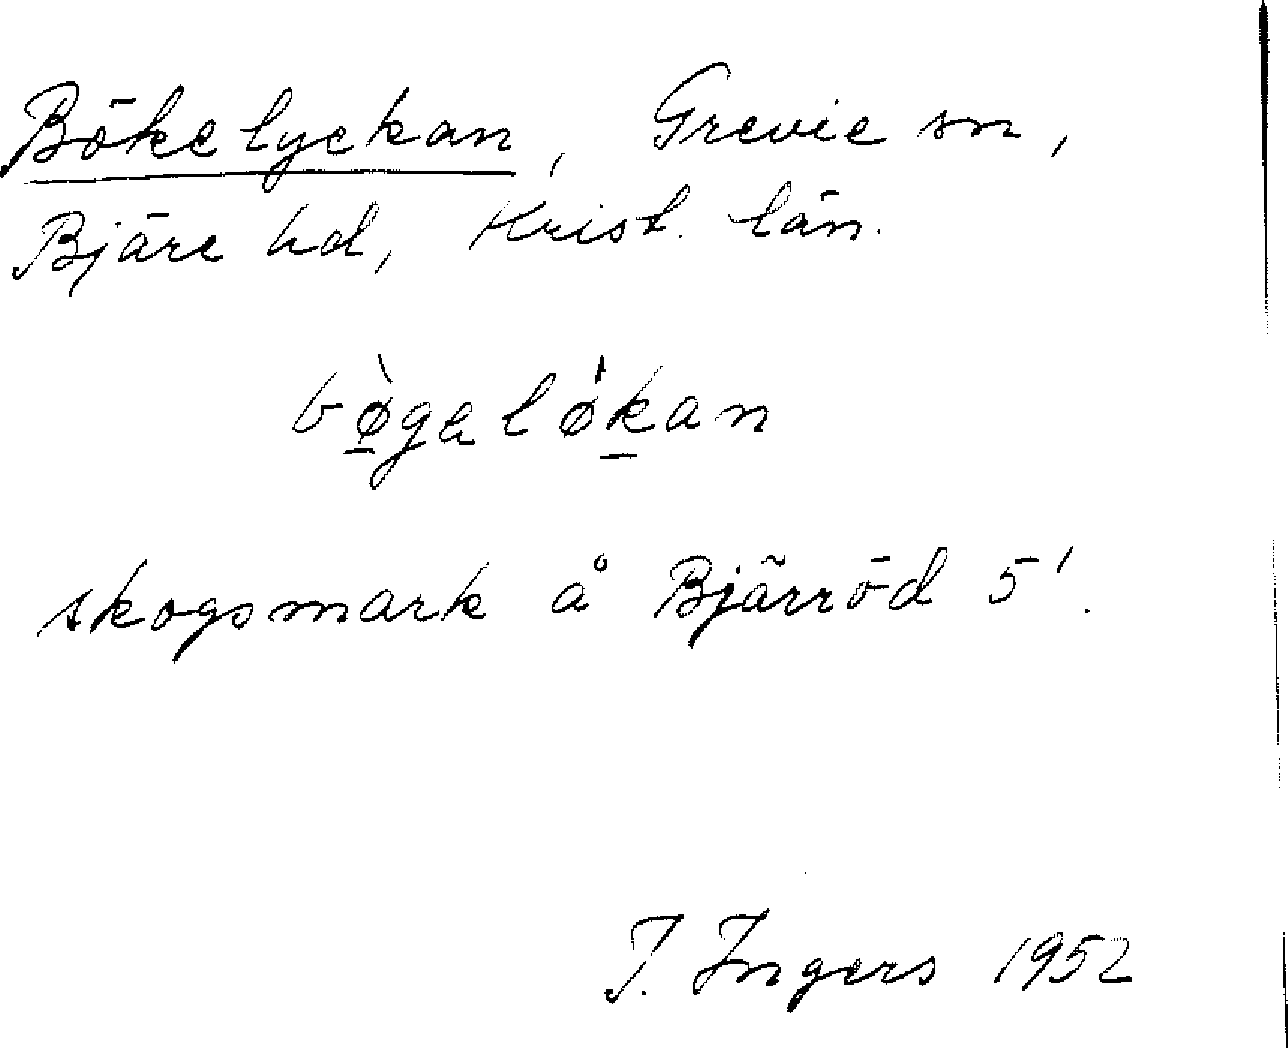 Bökelyckan, Grevie sn,
Bjäre hd, Krist. län.
bø̠̀galǿk̠an
skogsmark å Bjärröd 5¹.
I. Ingers 1952